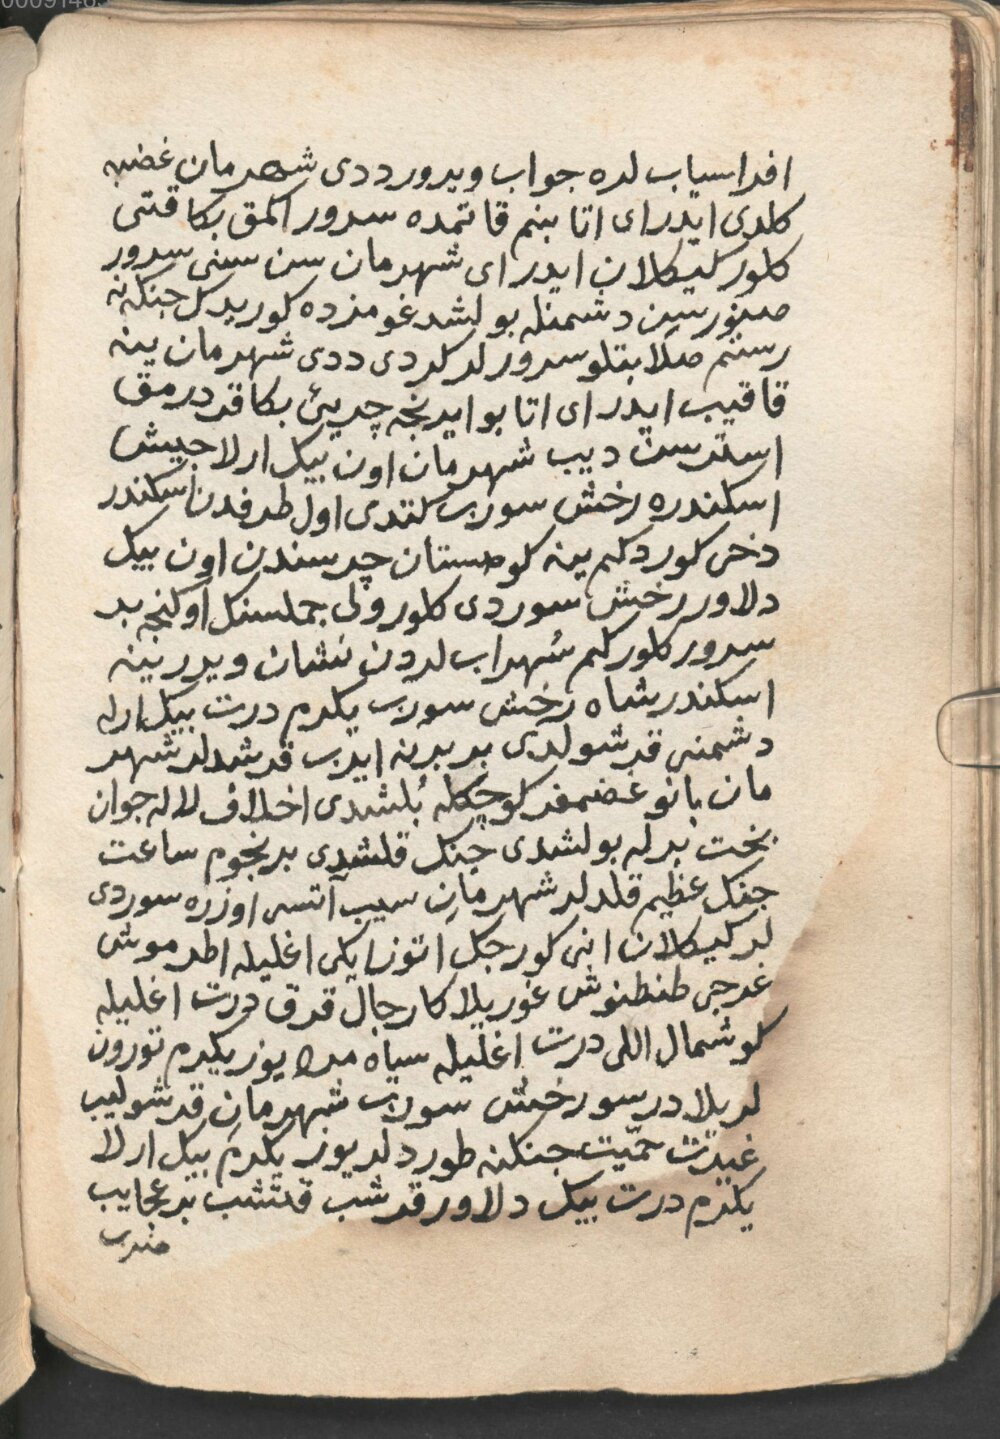 افراسياب لره جواب ويرور ددى شهرمان غضبه
كلدى ايدر اى اتا بنم قاتمده سرور اكمق بكا قتى
كلور كيكلان ايدر اى شهرمان سن سنى سرور
صنورسن دشمنله بولشدغومزده كوريدك جنكه نه
رستم صلابتلو سرورلر كردى ددى شهرمان ينه
قاقيب ايدر اى اتا بو ايدنجه چريى بكا قدرمق
استرسن ديب شهرمان اون بيك ارلا جيش
اسكندره رخش سورب كتدى اول طرفدن اسكندر
دخى كوردكم ينه كوهستان چرسندن اون بيك
دلاور رخش سوردى كلور ولى جملسنك اوكنجه بر
سرور كلور كم سُهراب لردن نشان ويرر ينه
اسكندر شاه رخش سورب يكرم درت بيك ارله
دشمنى قرشولدى بر برينه ايرب قرشدلر شهر
مان بانو غضمفر كوچكله بُلشدى اخلاف لاله جوان
بخت برله بولشدى جنك قلشدى بر نجوم ساعت
جنك عظيم قلدلر شهرمان سيب آتسى اوزره سوردى
لر كيكلان انى كورجك اتوز ايكى اغليله اطرموش
عرجى طنطنوش غوريلا كارجال قرق درت اغليله
كوشمال اللى درت اغليله سياه مرد يوز يكرم تورون
لريلا درسو رخش سورب شهرمان قرشوليب
غيرت حمّيت جنكنه طوردلر يوز يكرم بيك ارلا
يكرم درت بيك دلاور قرشب قتشب بر عجايب
ضرب